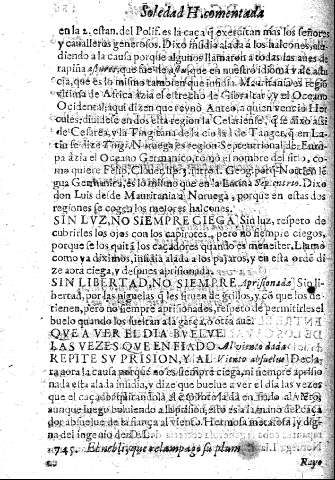 Soledad II. comentada
en la 2. estan. del Polif. es la caça q̃ exercitan mas los señores
y caualleros generosos. Dixo inſidia alada à los halcones, alu
diendo a la cauſa porque algunos llamaron a todas las aues de
rapiña que en nueſtro idioma vale aſtu
cia, que es lo miſmo tambien que inſidia. Mauritania es regiō
vltima de Africa àzia el eſtrecho de Gibraltar, y el Oceano
Occidental; aqui dizen que reynò Anteo, a quien vencio Her
cules; diuideſe en dos eſta region la Ceſarienſe, q̃ ſe dixo aſsi
de Ceſarea, y la Tingitana de la ciudad de Tanger, q̃ en La-
tin ſe dize Tingi. Noruega es region Septentrional de Euro-
pa àzia el Oceano Germanico, tomò el nombre del ſitio, co-
mo quiere Felio, Nort en lē
gua Germanica, es lo miſmo que en la Latina Septentro. Dixo
don Luis deſde Mauritania à Noruega, porque en eſtas dos
regiones ſe cogen los mejores halcones.
SIN LVZ, NO SIEMPRE CIEGA Sin luz, reſpeto de
cubrirles los ojos con los capirotes, pero no ſiempre ciegos,
porque ſe los quitā los caçadores quando es meneſter. Llamò
como ya diximos, inſidia alada a los pajaros, y en eſta ordē di
ze aora ciega, y deſpues apriſionada.
SIN LIBERTAD, NO SIEMPRE Apriſionada Sin li-
bertad, por las piguelas q̃ les ſiruen de grillos, y cō que los de
tienen, pero no ſiempre apriſionados, reſpeto de permitirles el
buelo quando los ſueltan a la garça, ò otra aue.
QVE A VER EL DIA BVELVE
LAS VEZES QVE EN FIADO Al viento dada
REPITE SV PRISION, Y AL Viento abſuelue Decla
ra aora la cauſa porque no es ſiempre ciega, ni ſiempre apriſio
nada eſta alada inſidia, y dize que buelue a ver el dia las vezes
que el caçador
aunque luego boluiendo a la priſion, eſto es a la mano del caça
dor abſuelue de la fiança al viento. Hermoſa metafora, y dig-
na del ingenio de D. L.
745. El nebli, que relampago ſu pluma
Rayo